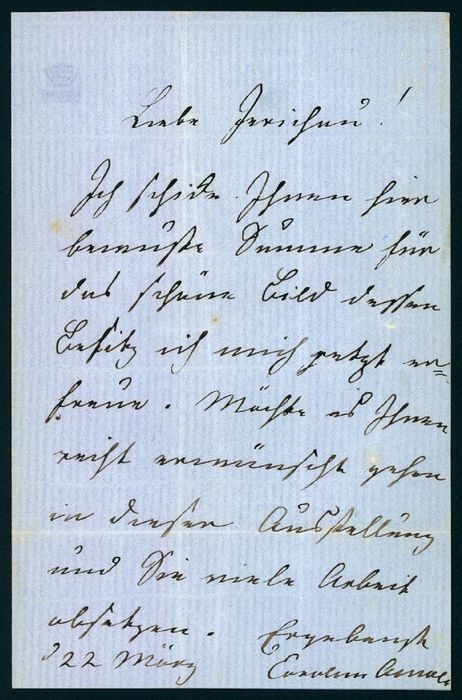 Liebe Jerichau!
Ich schicke Ihnen hier
bewußte Summe für
das schöne Bild dessen
Besitz ich mich jetzt er=
freue. Möchte es Ihnen
recht erwünscht gehen
in dieser Ausstellung
und Sie viele Arbeit
absetzen. Ergebenst
d 22 März